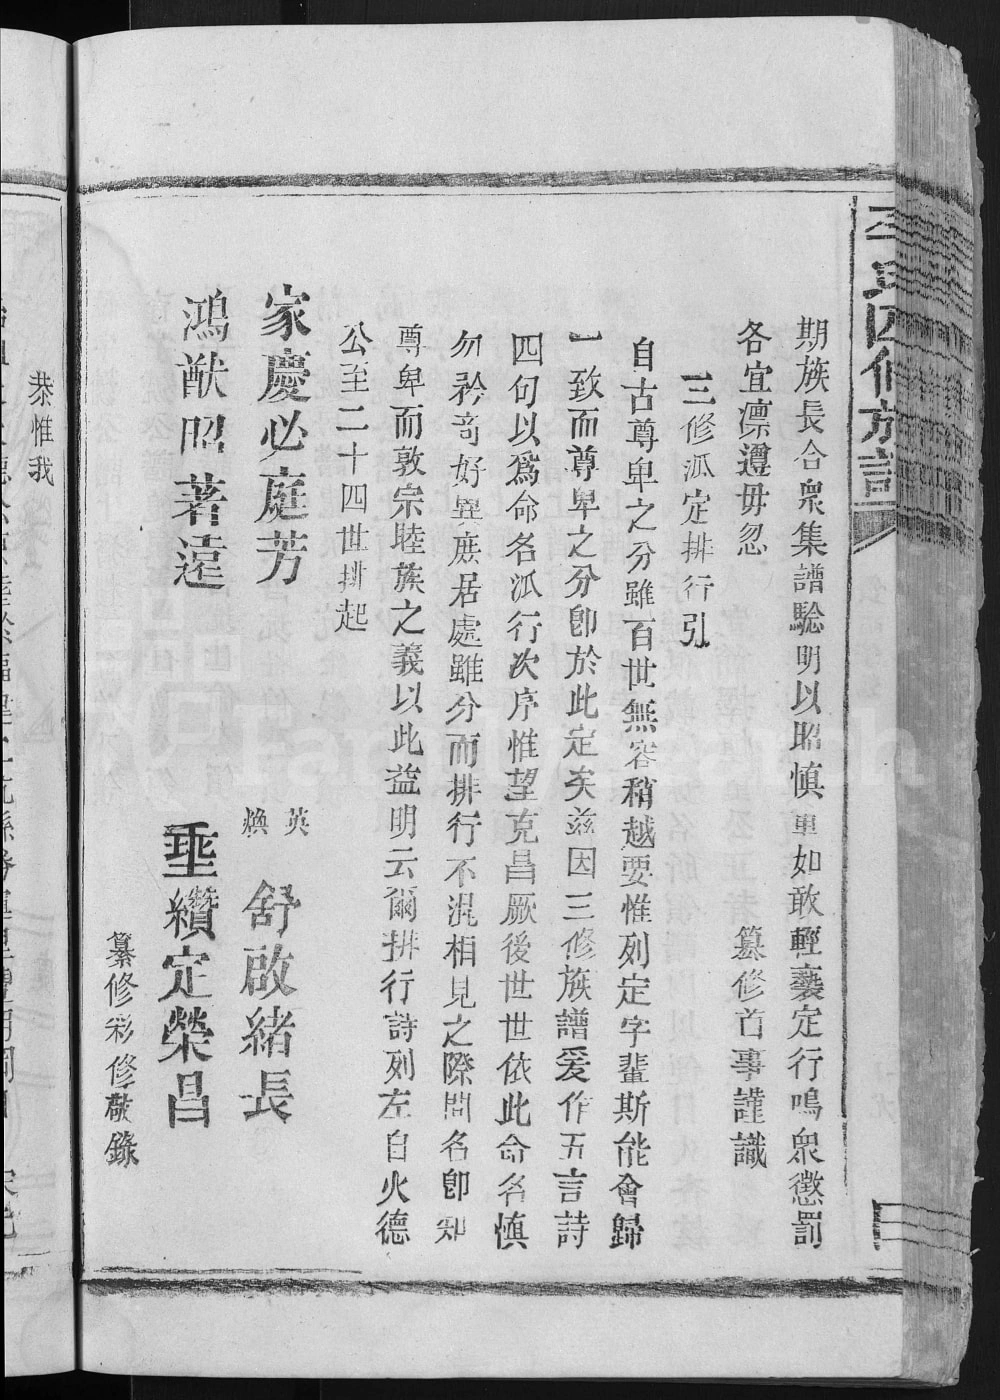 氏四修族譜
期族長合衆集譜驗明以昭慎重如敢輕褻定行鳴衆懲罰
各宜凛遵毋忽　篡修首事謹識
三修派定排行引
自古尊卑之分雖百世無容稍越要惟列定字輩斯能會歸
一致而尊卑之分卽於此定矣兹因三修族譜爰作五言詩
四句以爲命名派行次序惟望克昌厥後世世依此命名慎
勿矜奇好異庶居處雖分而排行不混相見之際問名卽知
尊卑而敦宗睦族之義以此益明云爾排行詩列左自火德
公至二十四世排起
家慶必庭芳　英煥　舒啟緒長
鴻猷昭著遠　垂纘定榮昌
纂修彩修敬錄
恭惟我